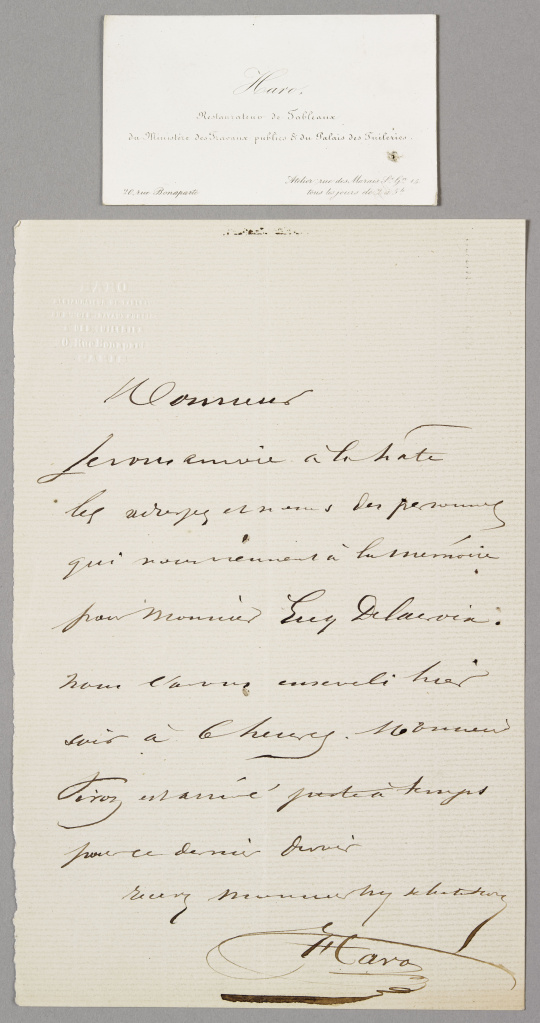 Haro,
Restaurateur de Tableaux
du Ministère des Travaux publics & du Palais des Tuileries.
Atelier rue des Marais St. Gn
20, rue Bonaparte
tous les jours de 2 à 5 h
HARO
Rue Bonaparte
PARIS
Monsieur
Je vous envoie à la hâte
les adresses et noms des personnes
qui nous viennent à la mémoire
pour Monsieur Eug Delacroix.
nous l'avons enseveli hier
soir à 6 heures. Monsieur
Piron est arrivé juste à temps
pour ce dernier devoir
recevez Monsieur
Haro